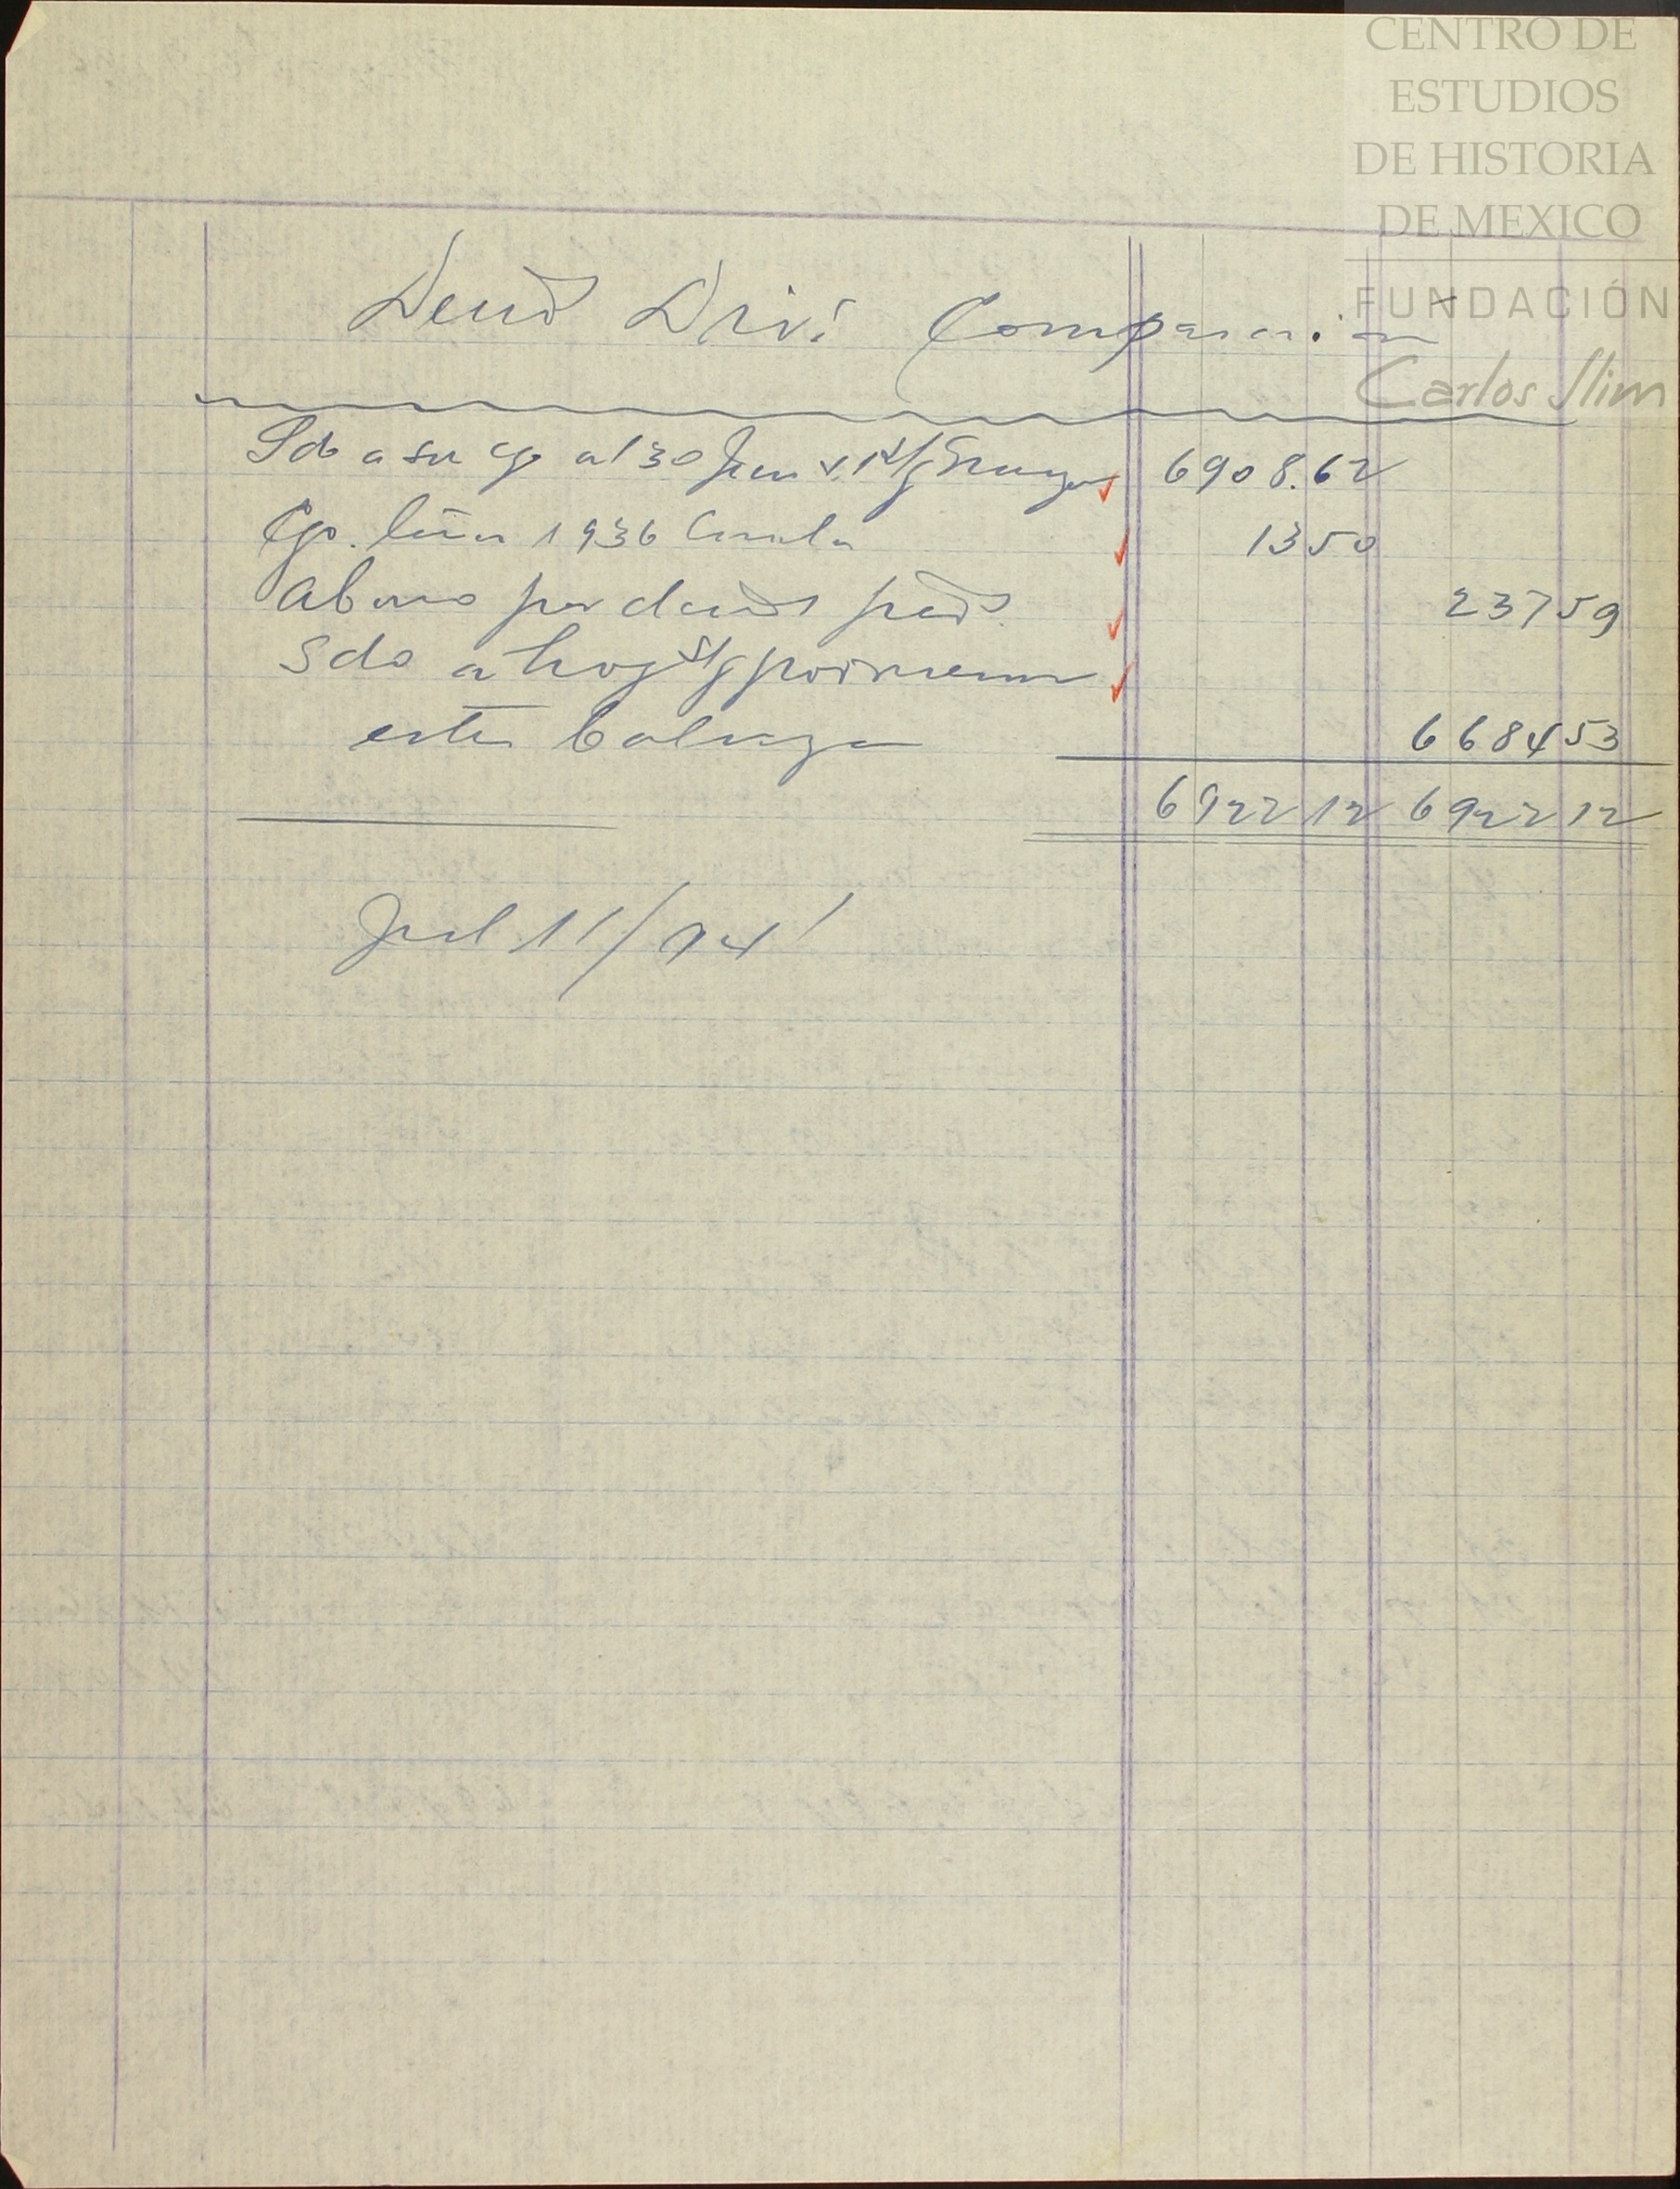 CENTRO DE
ESTUDIOS
DE HISTORIA
DE MEXICO
FUNDACIÓN
Carlos Slim
Deud Div: Comparación
Sdo a su cgo al 30 Jun 6908.62
Cgo. 1936 1350
Abono por 23759
Sdo a hoy
esta balanza 668453
692212 692212
Jul 11/941